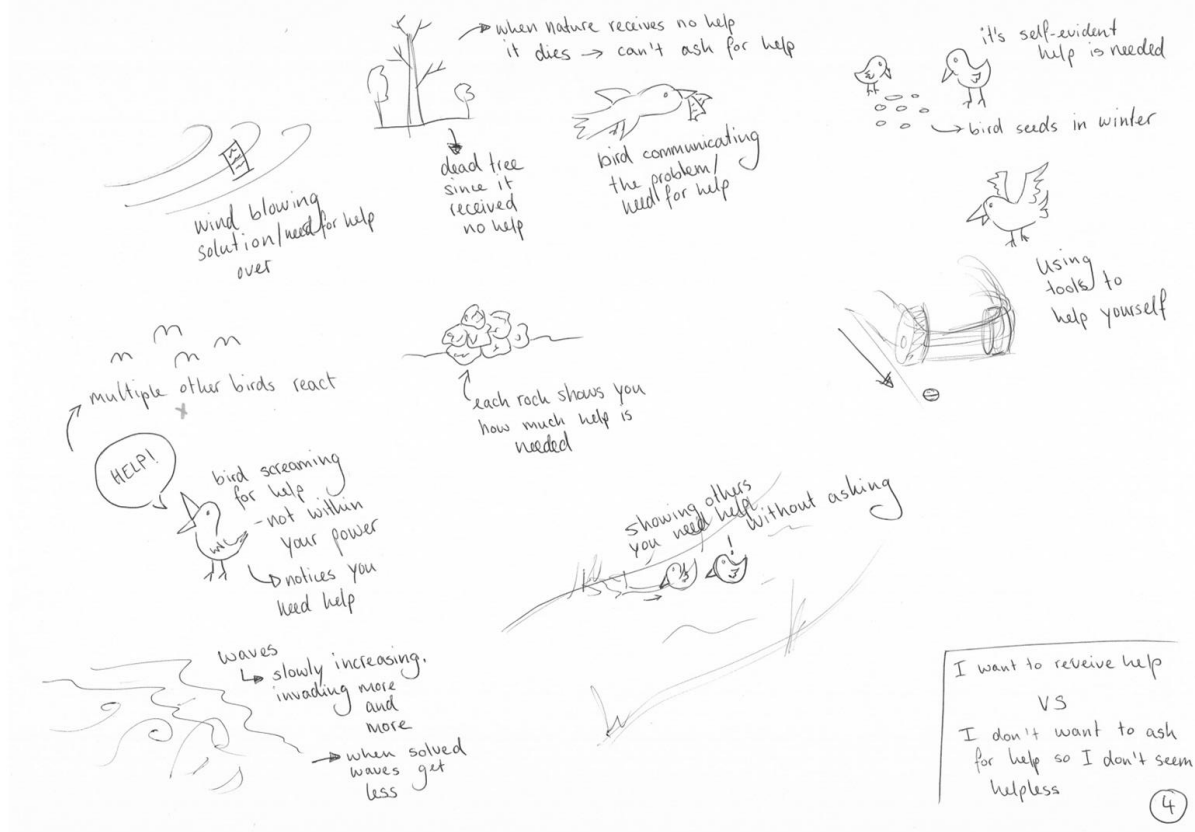 when nature receives no help
it dies → can't ask for help
it's self-evident
help is needed
bird seeds in winter
wind blowing
solution/need for help
over
dead tree
since it
received
no help
bird communicating
the problem/
need for help
using
tools to
help yourself
multiple other birds react
x
each rock shows you
how much help is
needed
HELP!
bird screaming
for help
-not within
your power
notices you
need help
showing others
you need help
without asking
!
waves
slowly increasing.
invading more
and
more
when solved
waves get
less
I want to reveive help
VS
I don't want to ask
for help so I don't seem
helpless
4